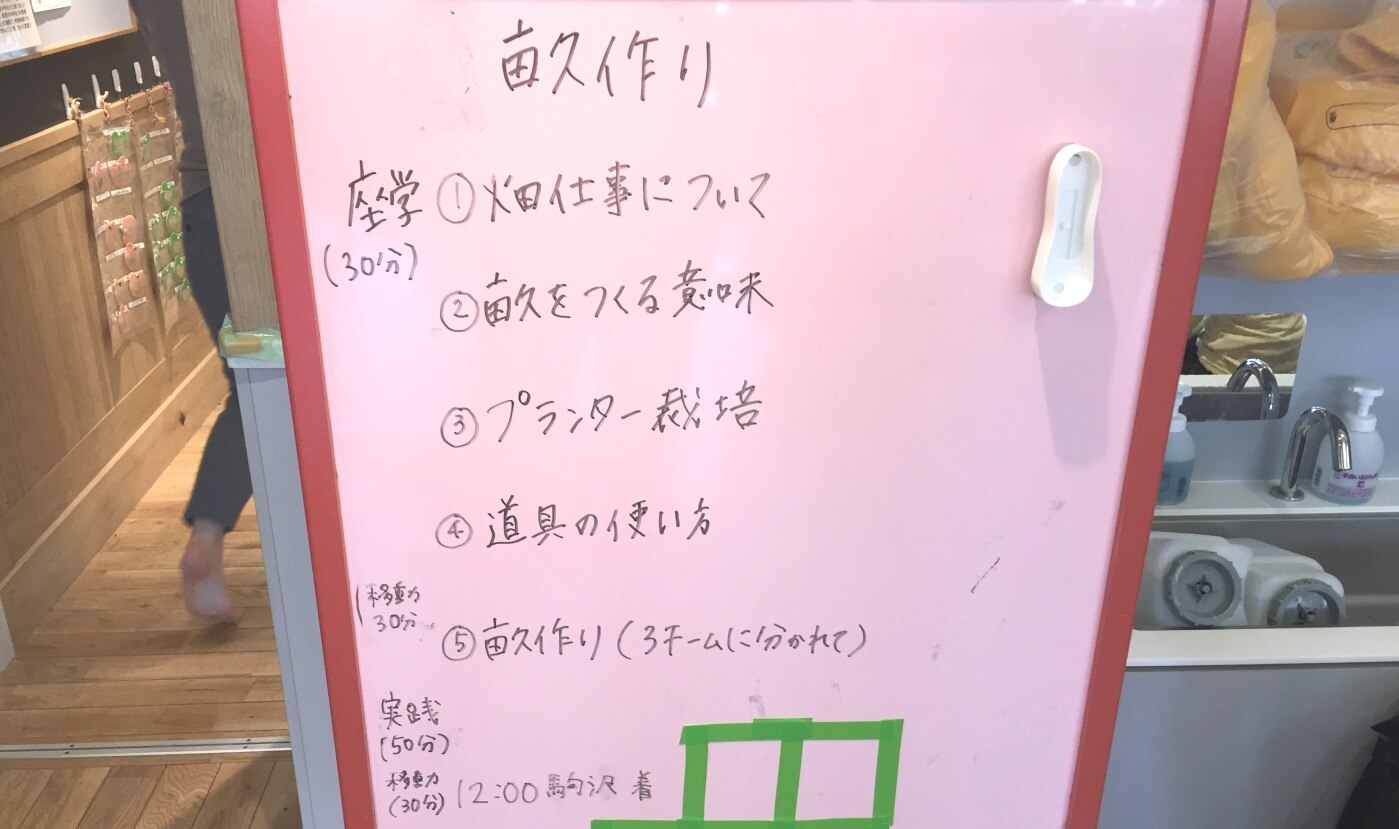 畝作り
座学 ① 畑仕事について
(30分)
② 畝をつくる意味
③ プランター栽培
④ 道具の使い方
移動
30分
⑤ 畝作り (3チームに分かれて)
実践
(50分)
移動
(30分) 12:00 駒沢 着